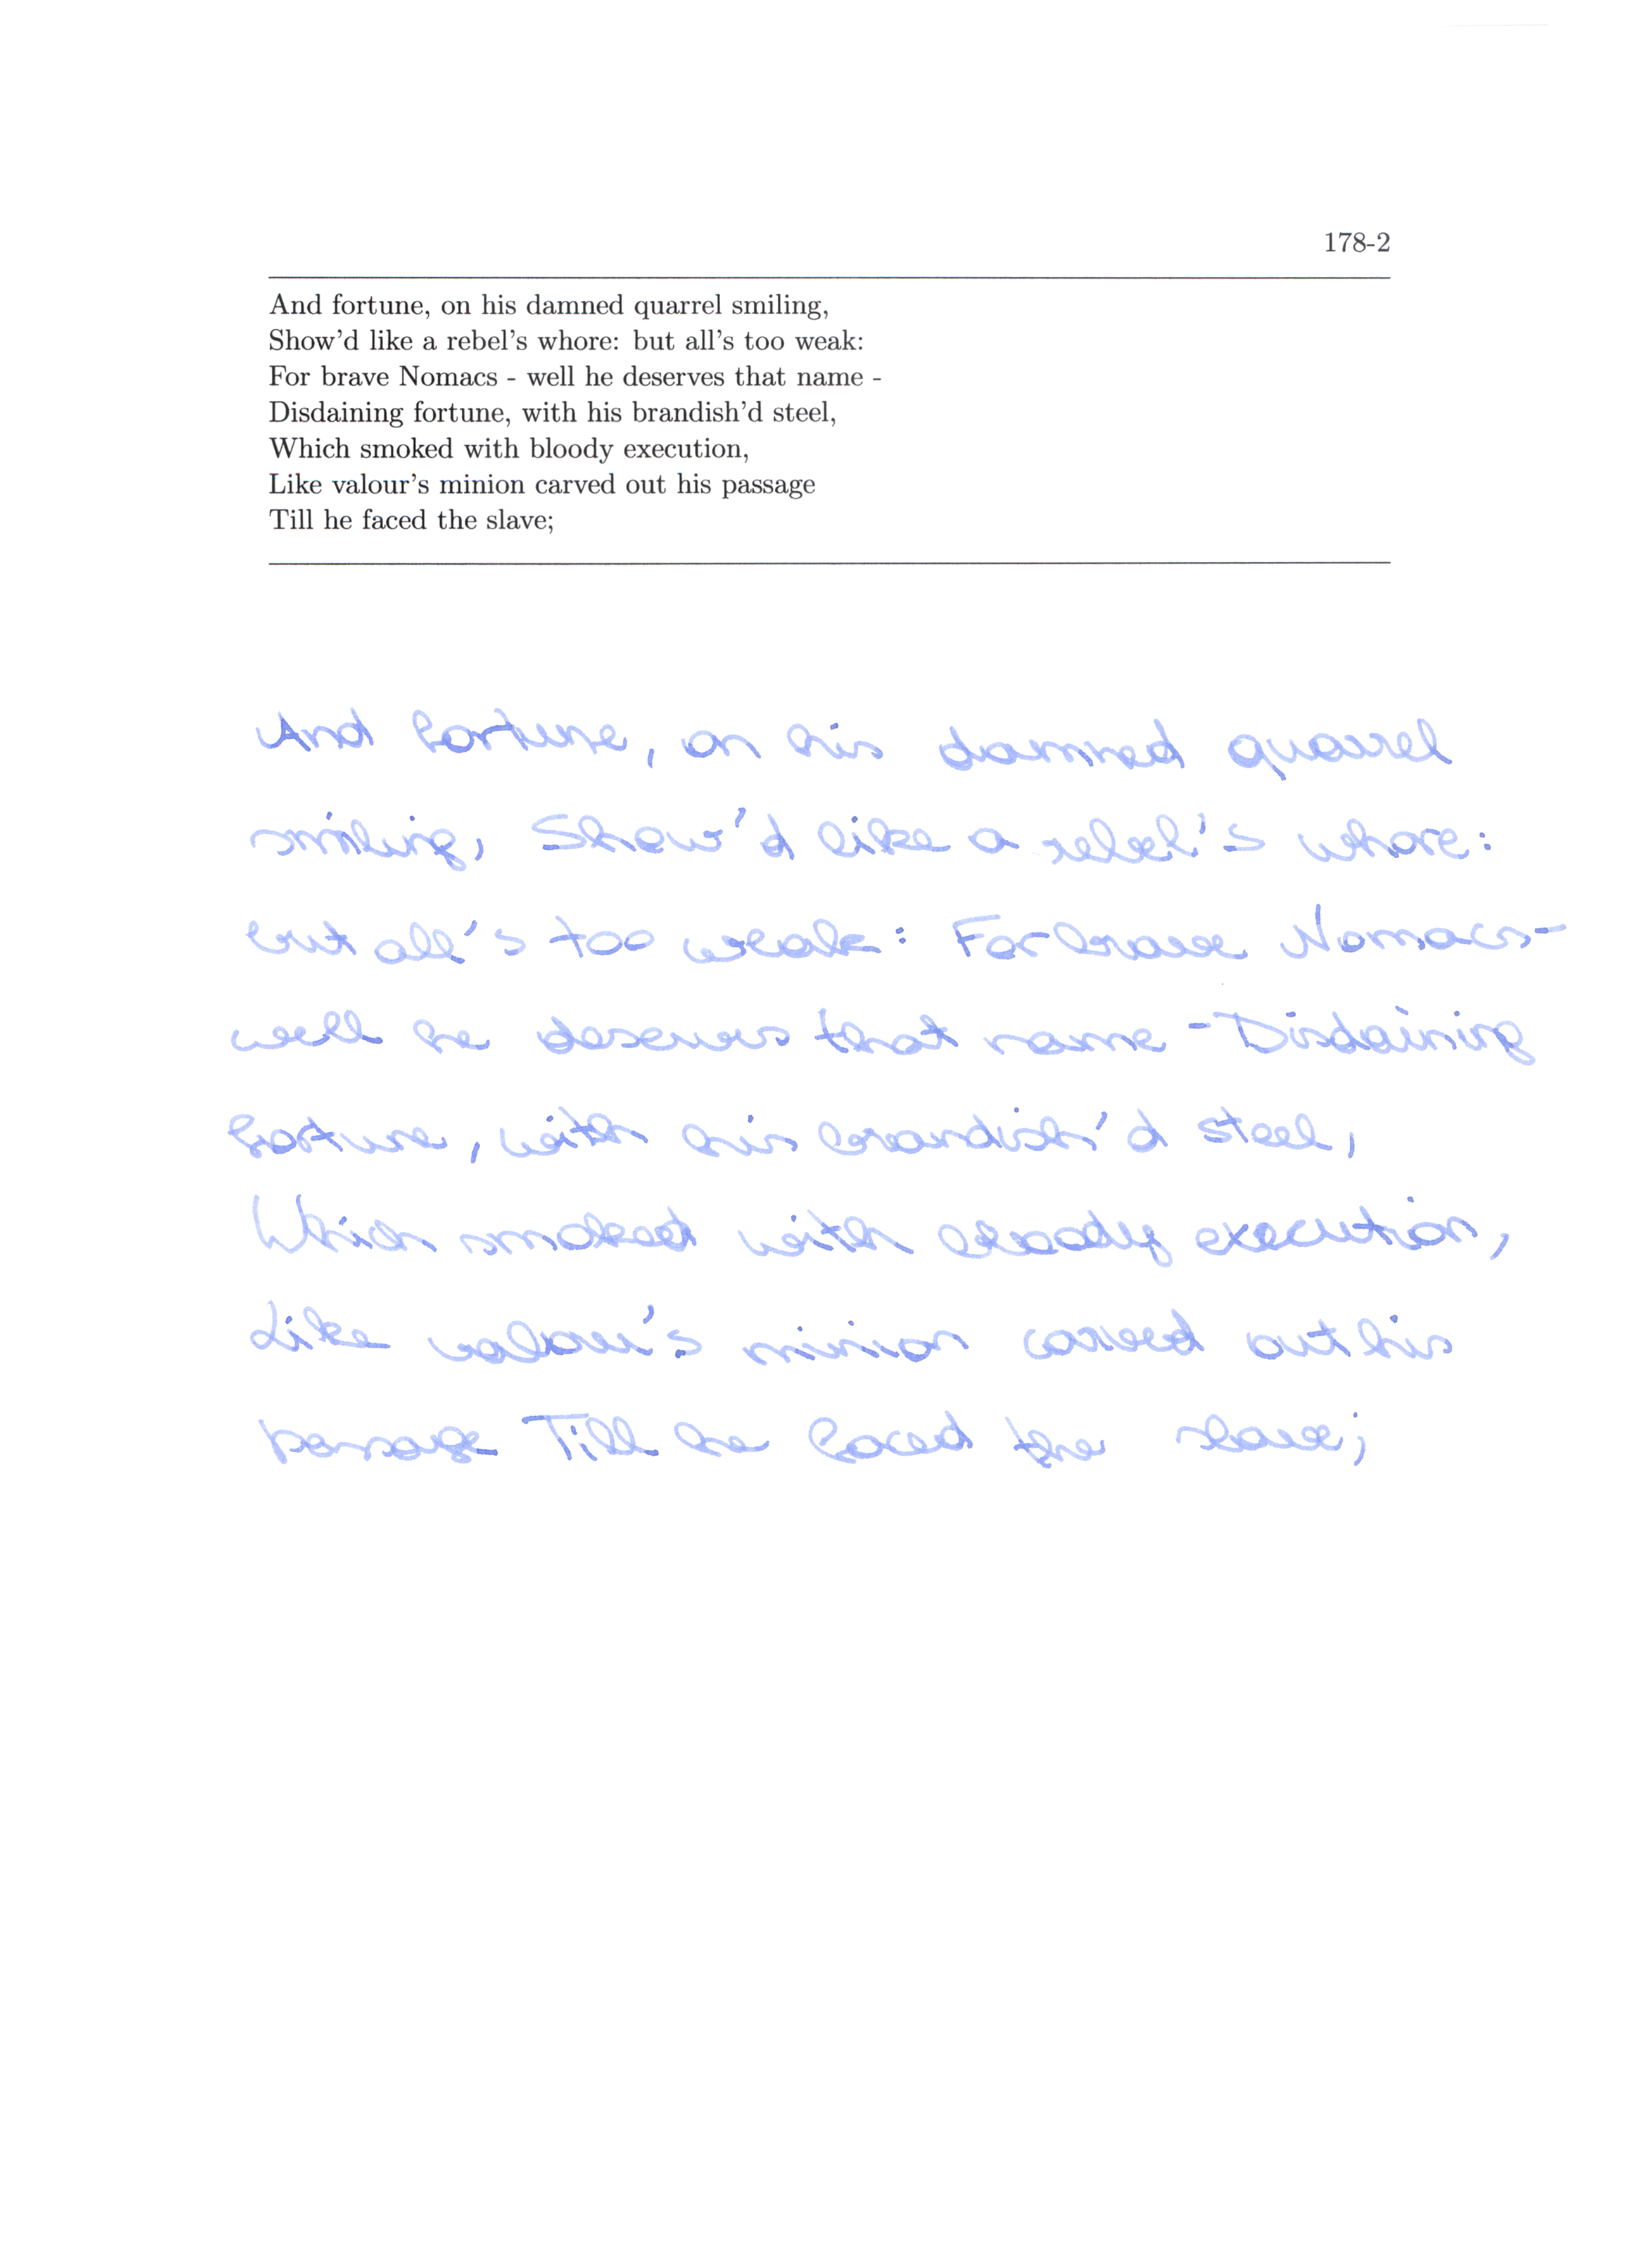 178-2
And fortune, on his damned quarrel smiling,
Show'd like a rebel's whore: but all's too weak:
For brave Nomacs - well he deserves that name -
Disdaining fortune, with his brandish'd steel,
Which smoked with bloody execution,
Like valour's minion carved out his passage
Till he faced the slave;
And fortune, on his damned quarrel
smiling, Show'd like a rebel's whore:
but all's too weak: For brave Nomacs-
well he deserves that name - Disdaining
fortune, with his brandish'd steel,
Which smoked with bloody execution,
Like valour's minion carved out his
passage Till he faced the slave;